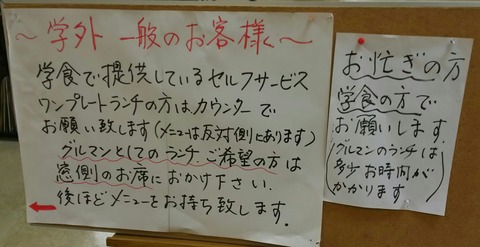 ～学外 一般のお客様～
学食で提供しているセルフサービス
ワンプレートランチの方はカウンターで
お願い致します(メニューは反対側にあります)
グルマンとしてのランチご希望の方は
窓側のお席におかけ下さい.
後ほどメニューをお持ち致します.
お忙ぎの方
学食の方で
お願いします
(グルマンのランチは
多少お時間が
かかります)